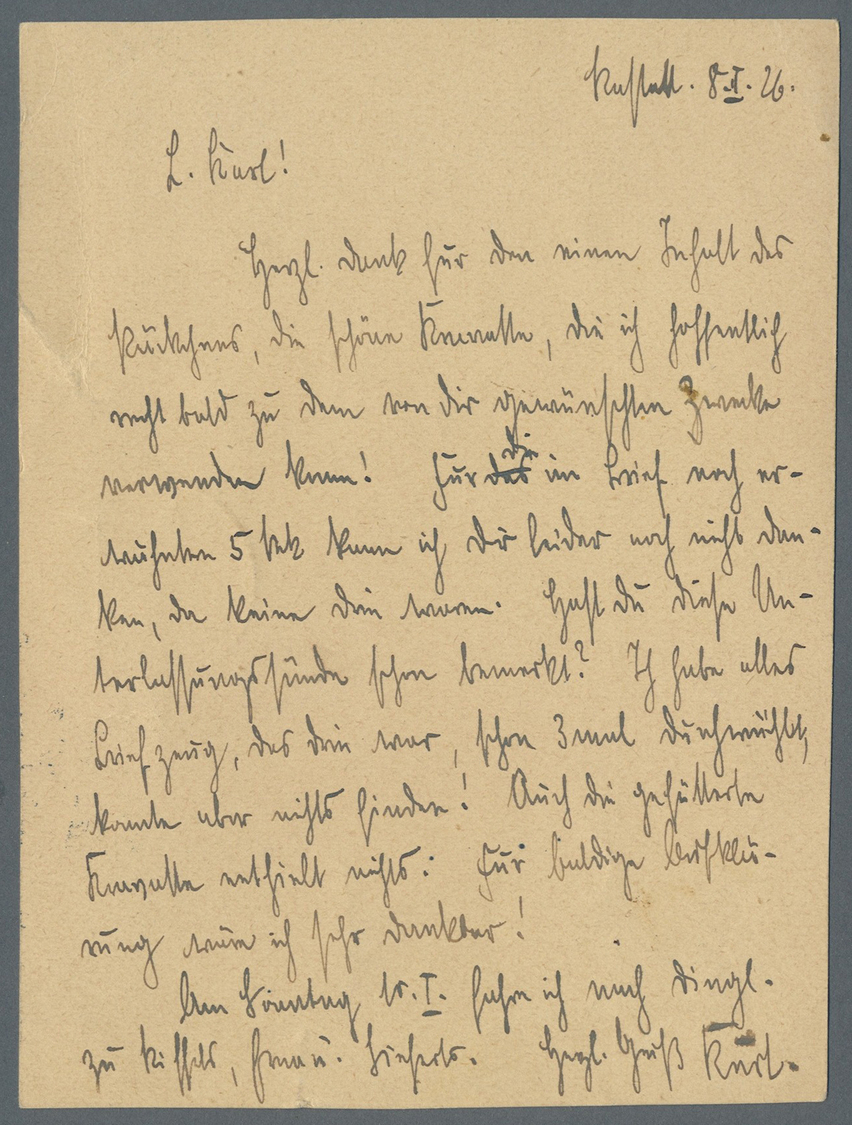 Rastatt. 8.I.26.
L. Karl!
Herzl. Dank für den einen Inhalt des
Päckchens, die schöne Krawatte, die ich hoffentlich
recht bald zu dem von dir gewünschten Zwecke
verwenden kann! Für das die im Brief noch er-
wähnten 5 kann ich Dir leider noch nicht dan-
ken, da keine drin waren. Hast du diese Un-
terlassungssünde schon bemerkt? Ich habe alles
Briefzeug, das drin war, schon 3mal durchwühlt,
konnte aber nichts finden! Auch die gefütterte
Krawatte enthielt nichts. Für baldige Aufklä-
rung wäre ich sehr dankbar!
Am Sonntag 10.I. fahre ich nach Dingl.
zu . Herzl. Gruß Kurt.